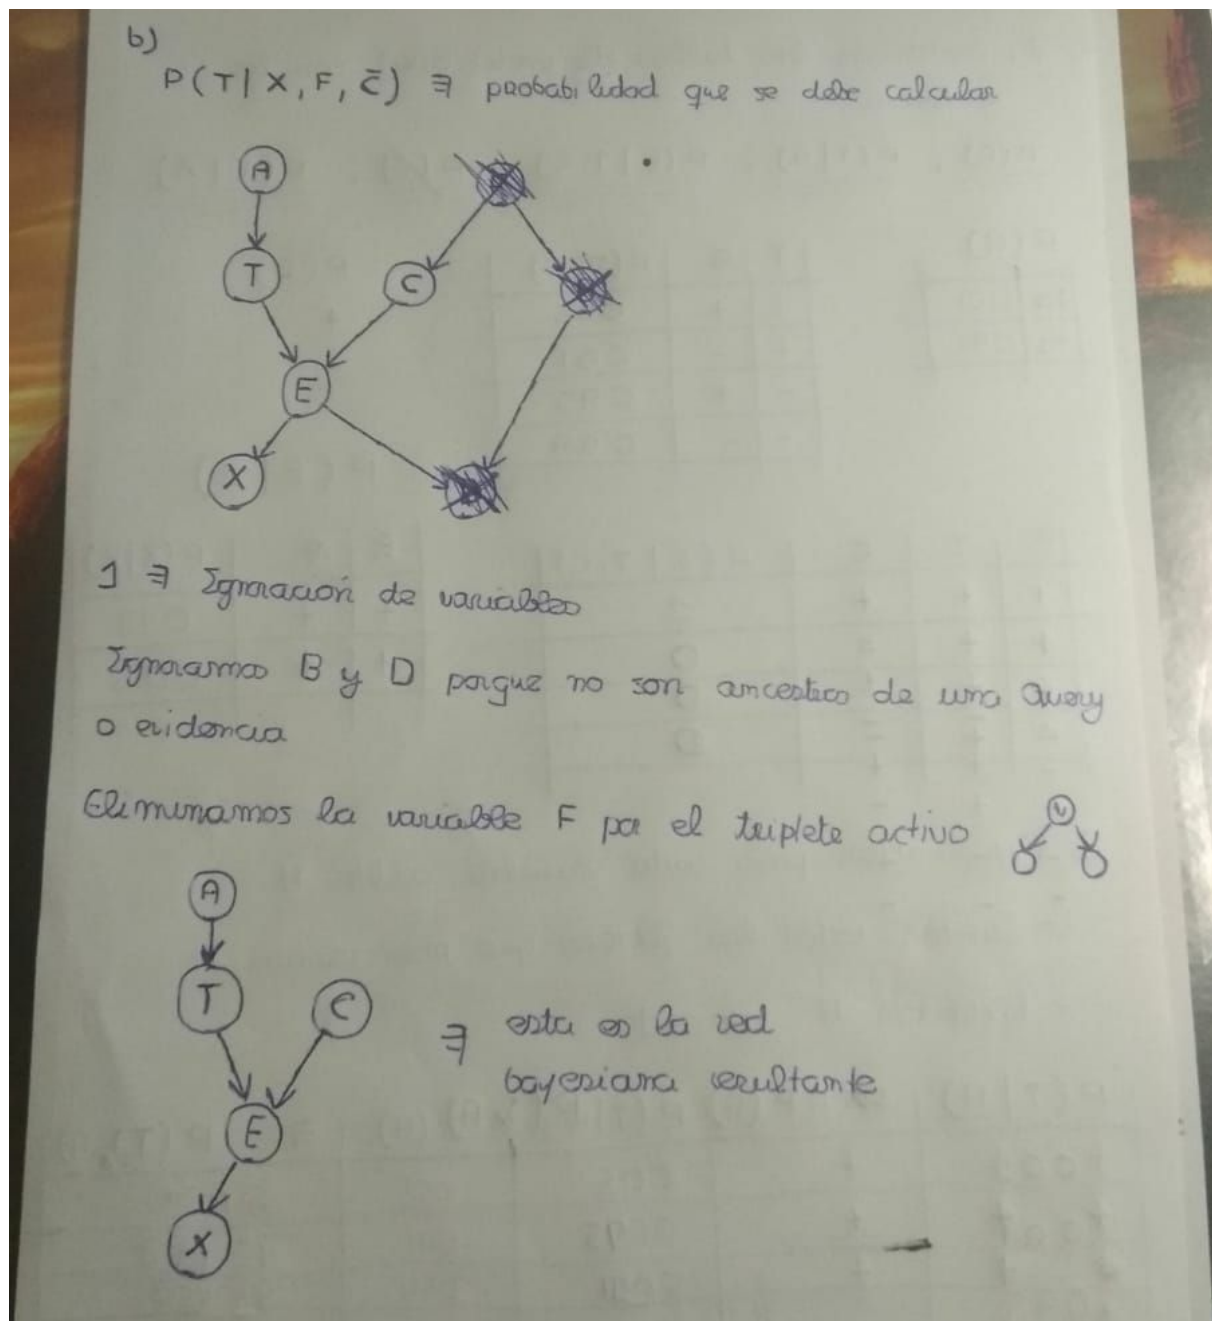 b)
P(T | X, F, C̄) ∃ probabilidad que se debe calcular
A
T
C
E
X
1 ∃ Ignoración de variables
Ignoramos B y D porque no son ancestros de una Query
o evidencia
Eliminamos la variable F por el triplete activo
A
T
C
∃ esta es la red
bayesiana resultante
E
X